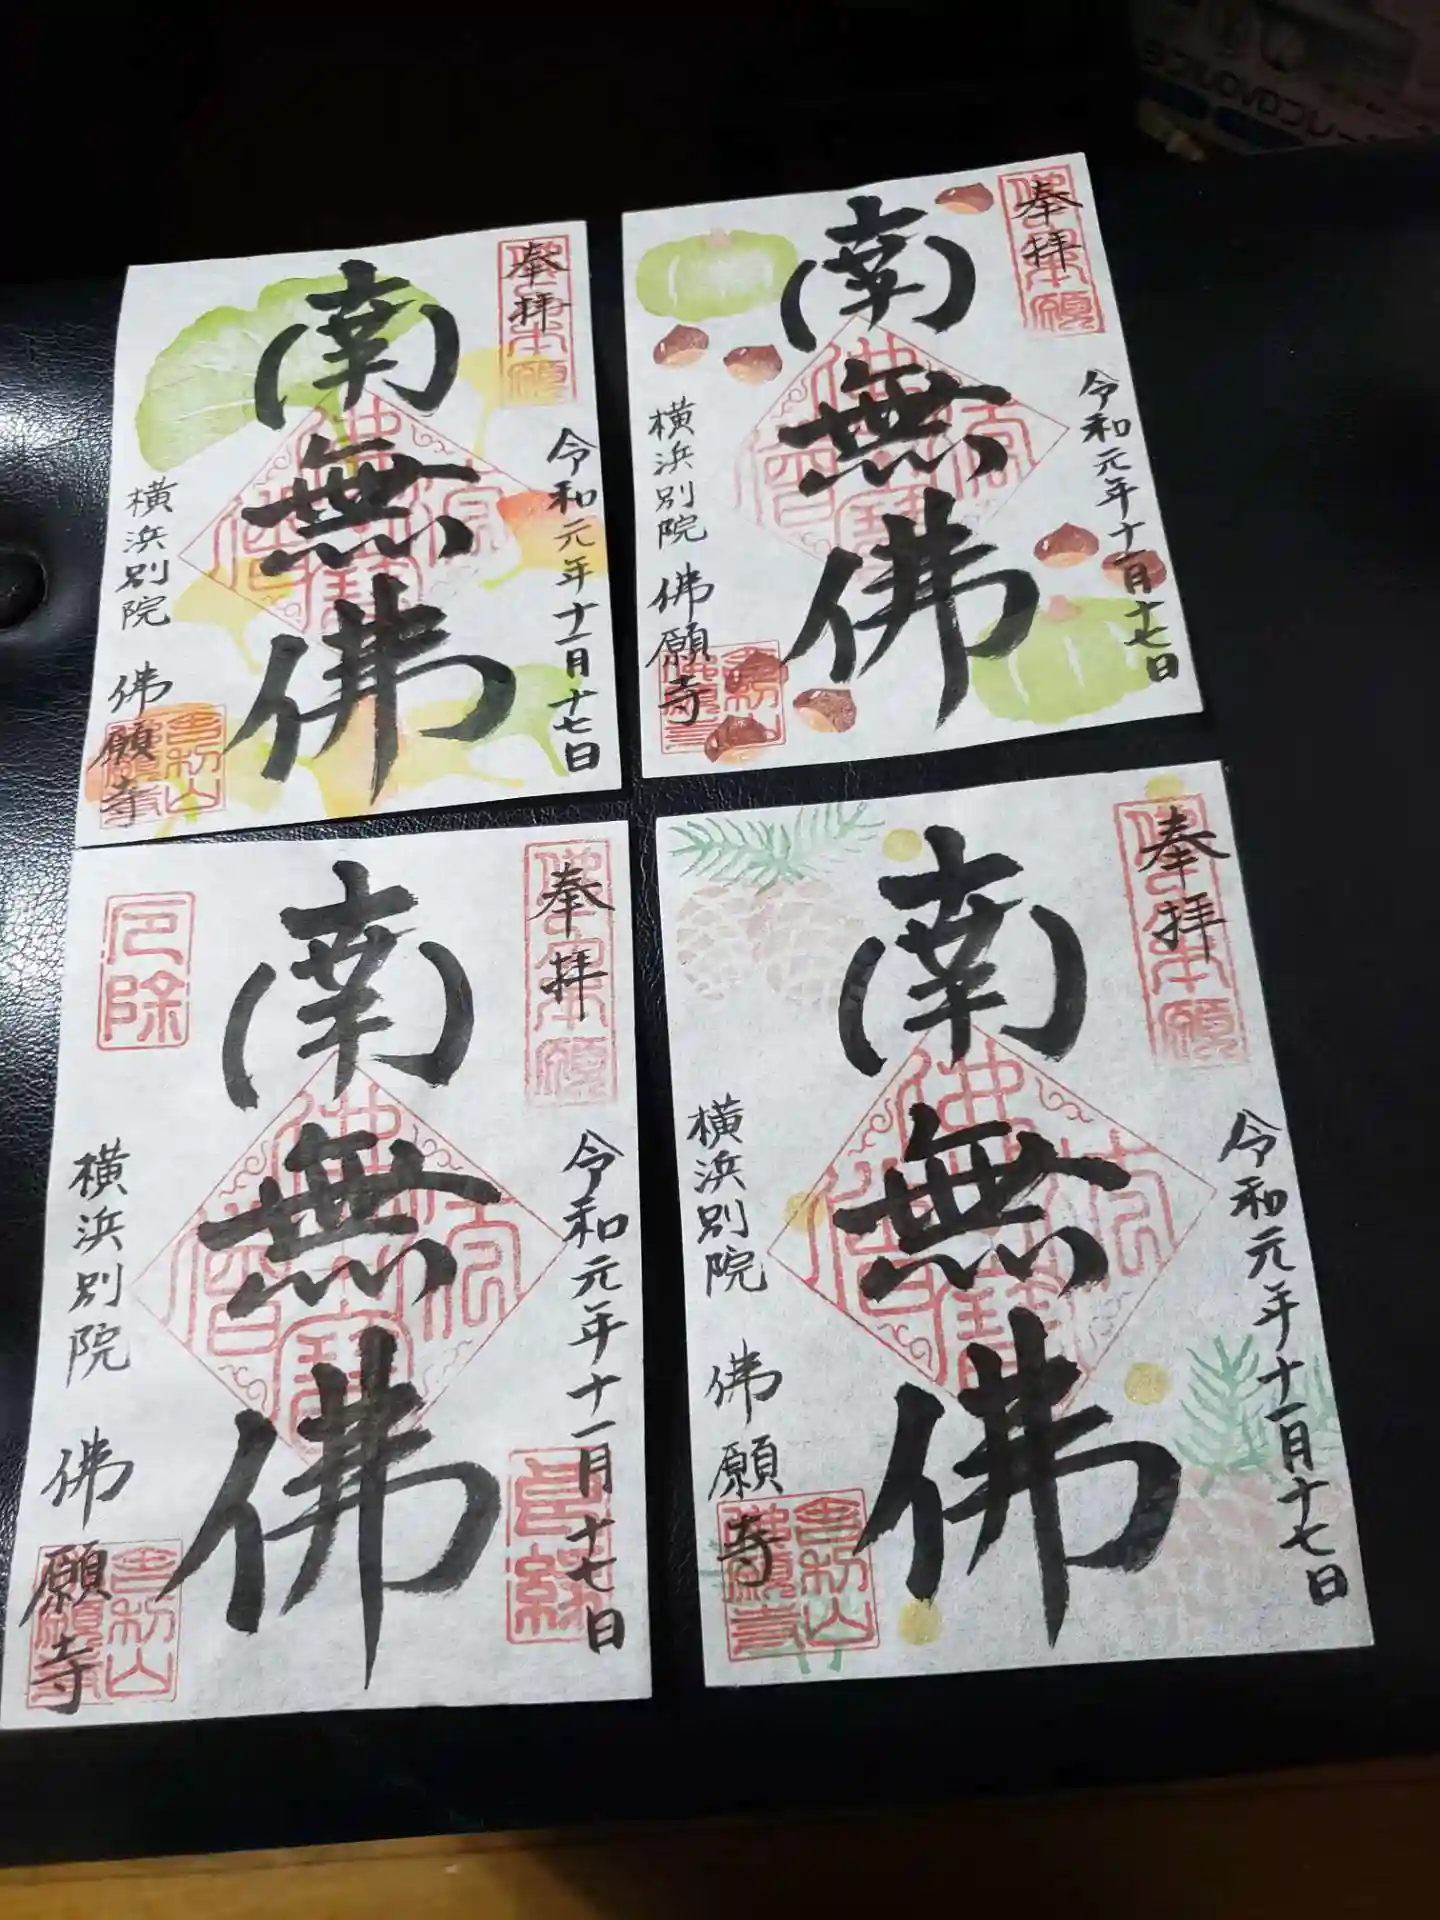 奉拝
南無佛
令和元年十一月十七日
横浜別院 佛願寺
奉拝
南無佛
令和元年十一月十七日
横浜別院 佛願寺
奉拝
厄除
南無佛
令和元年十一月十七日
横浜別院 佛願寺
奉拝
南無佛
令和元年十一月十七日
横浜別院 佛願寺